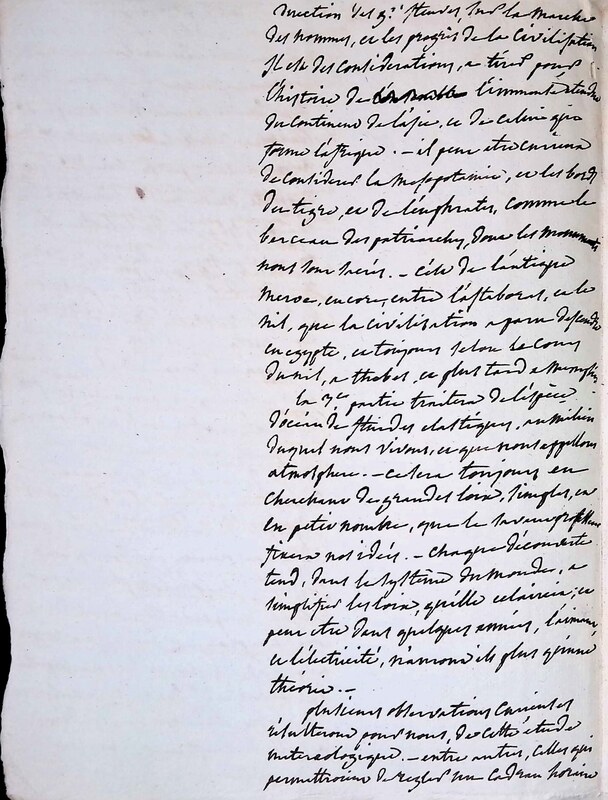 direction des gds fleuves, sur la marche
des hommes, et les progrès de la civilisation
Il est des considérations, a tirer pour
l'histoire de l'immense étendue
du continent de l'asie, et de celui qui
forme l'afrique. - il peut etre curieux
de considerer la mesopotamie, et les bords
du tigre, et de l'euphrate, comme le
berceau des patriarches, dont les monuments
nous sont sacrés. - c'est de l'antique
meroe, encore, entre l'astaboras, et le
nil, que la civilisation a paru descendre
en egypte, et toujours selon le cours
du nil, a thebes, et plus tard a memphis
la 3me partie traitera de l'espèce
d'océan de fluides elastiques, au milieu
duquel nous vivons, et que nous appellons
atmosphere. - ce sera toujours en
cherchant de grandes loix, simples, et
en petit nombre, que le savant professeur
fixera nos idées. - chaque découverte
tend, dans le système du monde, a
simplifier les loix, qu'elle eclaircit; et
peut etre dans quelques années, l'aimant
et l'électricité, n'auront ils plus qu'une
théorie. -
plusieurs observations curieuses
résulteront pour nous, de cette étude
meteorologique. - entre autres, celles qui
permettroient de regler un cadran horaire